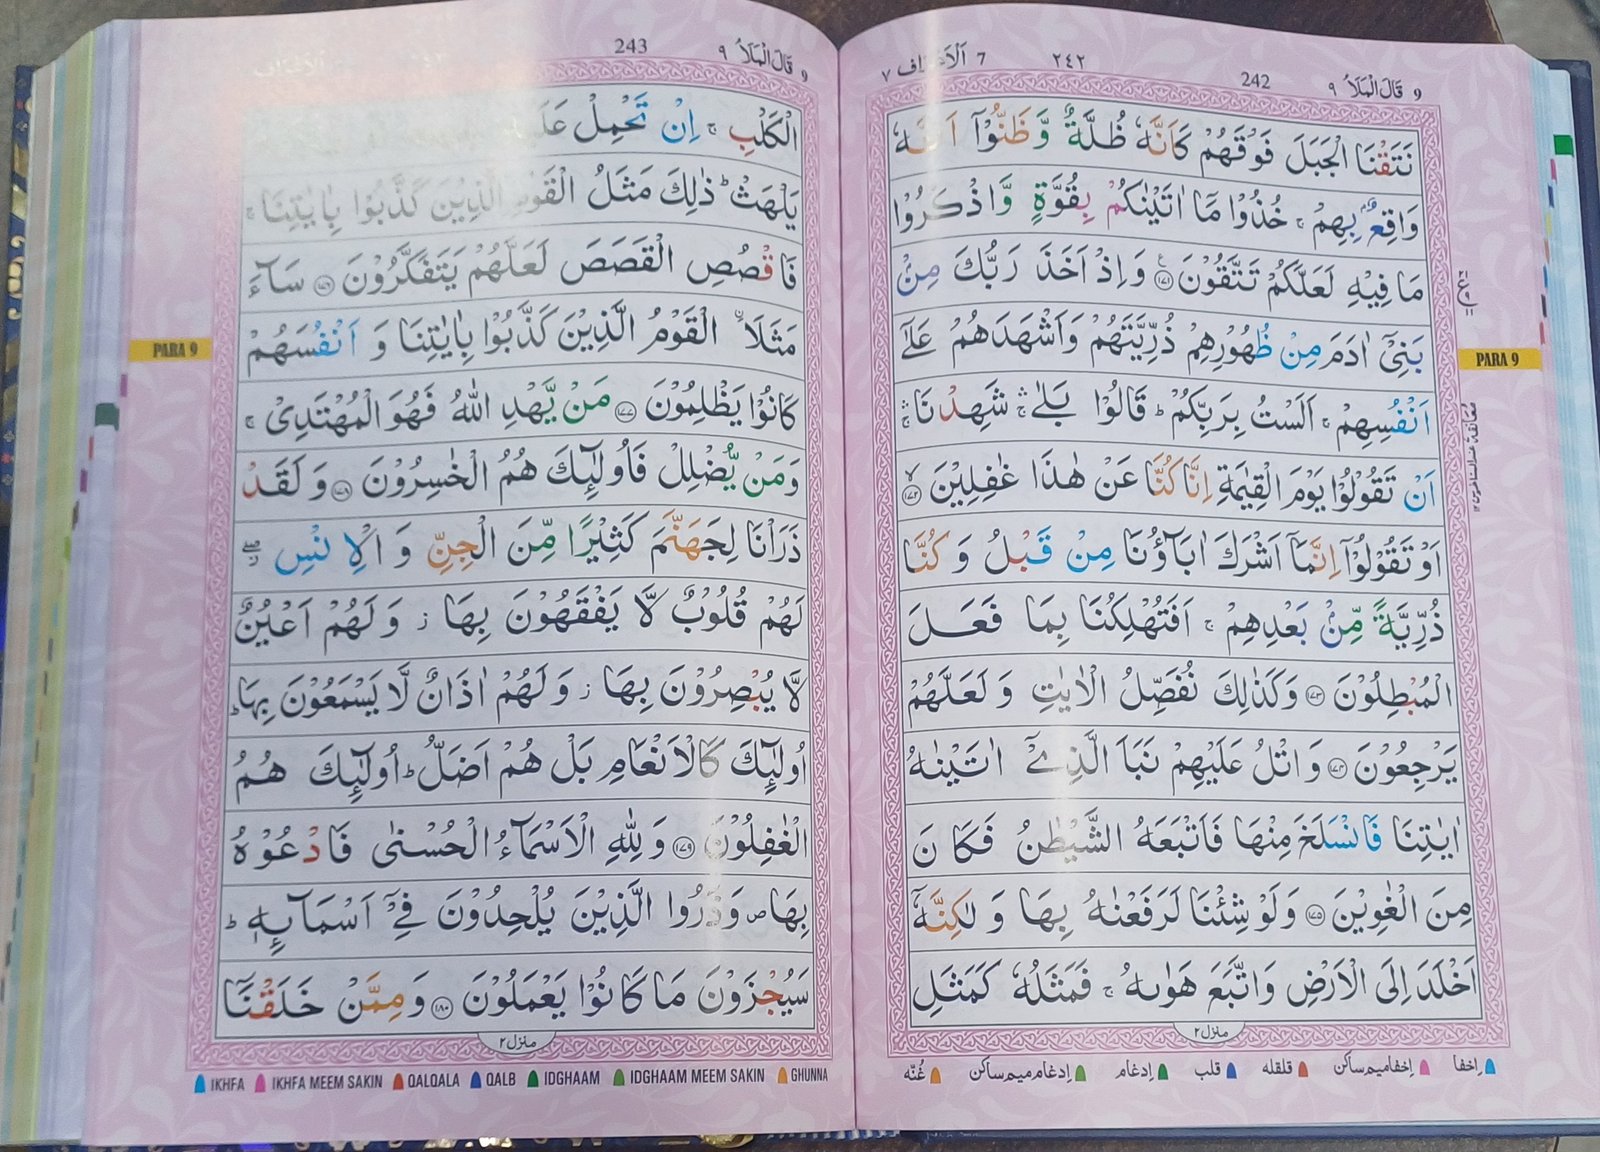 9 قَالَ الْمَلَاُ ٩
242
٢٤٢
7 اَلْاَعْرَاف ٧
نَتَقْنَا الْجَبَلَ فَوْقَهُمْ كَاَنَّهٗ ظُلَّةٌ وَّظَنُّوْۤا اَنَّهٗ
وَاقِعٌۢ بِهِمْ ۚ خُذُوْا مَاۤ اٰتَيْنٰكُمْ بِقُوَّةٍ وَّاذْكُرُوْا
مَا فِيْهِ لَعَلَّكُمْ تَتَّقُوْنَ ﴿١٧١﴾ وَاِذْ اَخَذَ رَبُّكَ مِنْۢ
بَنِىْۤ اٰدَمَ مِنْ ظُهُوْرِهِمْ ذُرِّيَّتَهُمْ وَاَشْهَدَهُمْ عَلٰٓى
اَنْفُسِهِمْ ۚ اَلَسْتُ بِرَبِّكُمْ ؕ قَالُوْا بَلٰى ۛۚ شَهِدْنَا ۛۚ
اَنْ تَقُوْلُوْا يَوْمَ الْقِيٰمَةِ اِنَّا كُنَّا عَنْ هٰذَا غٰفِلِيْنَ ۙ﴿١٧٢﴾
اَوْ تَقُوْلُوْۤا اِنَّمَاۤ اَشْرَكَ اٰبَآؤُنَا مِنْ قَبْلُ وَكُنَّا
ذُرِّيَّةً مِّنْۢ بَعْدِهِمْ ۚ اَفَتُهْلِكُنَا بِمَا فَعَلَ
الْمُبْطِلُوْنَ ﴿١٧٣﴾ وَكَذٰلِكَ نُفَصِّلُ الْاٰيٰتِ وَلَعَلَّهُمْ
يَرْجِعُوْنَ ﴿١٧٤﴾ وَاتْلُ عَلَيْهِمْ نَبَاَ الَّذِىْۤ اٰتَيْنٰهُ
اٰيٰتِنَا فَانْسَلَخَ مِنْهَا فَاَتْبَعَهُ الشَّيْطٰنُ فَكَانَ
مِنَ الْغٰوِيْنَ ﴿١٧٥﴾ وَلَوْ شِئْنَا لَرَفَعْنٰهُ بِهَا وَلٰكِنَّهٗۤ
اَخْلَدَ اِلَى الْاَرْضِ وَاتَّبَعَ هَوٰىهُ ۚ فَمَثَلُهٗ كَمَثَلِ
منزل ٢
PARA 9
اِخفا اِخفا میم ساکن قلقله قلب اِدغام اِدغام میم ساکن غُنّه
9 قَالَ الْمَلَاُ ٩
243
الْكَلْبِ ۚ اِنْ تَحْمِلْ
يَلْهَثْ ؕ ذٰلِكَ مَثَلُ الْقَوْمِ الَّذِيْنَ كَذَّبُوْا بِاٰيٰتِنَا ۚ
فَاقْصُصِ الْقَصَصَ لَعَلَّهُمْ يَتَفَكَّرُوْنَ ﴿١٧٦﴾ سَآءَ
مَثَلَا ۨالْقَوْمُ الَّذِيْنَ كَذَّبُوْا بِاٰيٰتِنَا وَاَنْفُسَهُمْ
كَانُوْا يَظْلِمُوْنَ ﴿١٧٧﴾ مَنْ يَّهْدِ اللّٰهُ فَهُوَ الْمُهْتَدِىْ ۚ
وَمَنْ يُّضْلِلْ فَاُولٰٓئِكَ هُمُ الْخٰسِرُوْنَ ﴿١٧٨﴾ وَلَقَدْ
ذَرَاْنَا لِجَهَنَّمَ كَثِيْرًا مِّنَ الْجِنِّ وَالْاِنْسِ ۖ ز
لَهُمْ قُلُوْبٌ لَّا يَفْقَهُوْنَ بِهَا ز وَلَهُمْ اَعْيُنٌ
لَّا يُبْصِرُوْنَ بِهَا ز وَلَهُمْ اٰذَانٌ لَّا يَسْمَعُوْنَ بِهَا ؕ
اُولٰٓئِكَ كَالْاَنْعَامِ بَلْ هُمْ اَضَلُّ ؕ اُولٰٓئِكَ هُمُ
الْغٰفِلُوْنَ ﴿١٧٩﴾ وَلِلّٰهِ الْاَسْمَآءُ الْحُسْنٰى فَادْعُوْهُ
بِهَا ص وَذَرُوا الَّذِيْنَ يُلْحِدُوْنَ فِىْۤ اَسْمَآئِهٖ ؕ
سَيُجْزَوْنَ مَا كَانُوْا يَعْمَلُوْنَ ﴿١٨٠﴾ وَمِمَّنْ خَلَقْنَاۤ
منزل ٢
PARA 9
IKHFA IKHFA MEEM SAKIN QALQALA QALB IDGHAAM IDGHAAM MEEM SAKIN GHUNNA